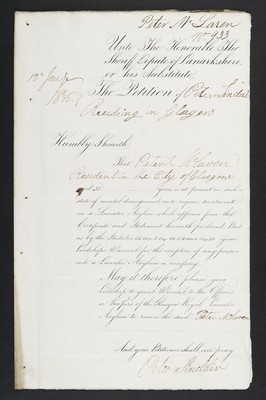 Peter McLaren
No 933
Unto The Honorable The
Sheriff Depute of Lanarkshire
or his Substitute
The Petition of Peter Sinclair
Residing in Glasgow
Humbly Sheweth,
That Peter McLaren
Resident in the City of Glasgow
years is at present in such a
state of mental derangement as to require treatment
in a Lunatic Asylum which appears from the
Certificate and Statement herewith produced But
as by the Statutes
Lordships Warrant for the reception of any person
into a Lunatic Asylum is necessary
May it therefore please your
Lordship to grant Warrant to the Officers
or Keepers of the Glasgow Royal Lunatic
Asylum to receive the said Peter McLaren
And your Petitioner shall ever pray
Peter Sinclair